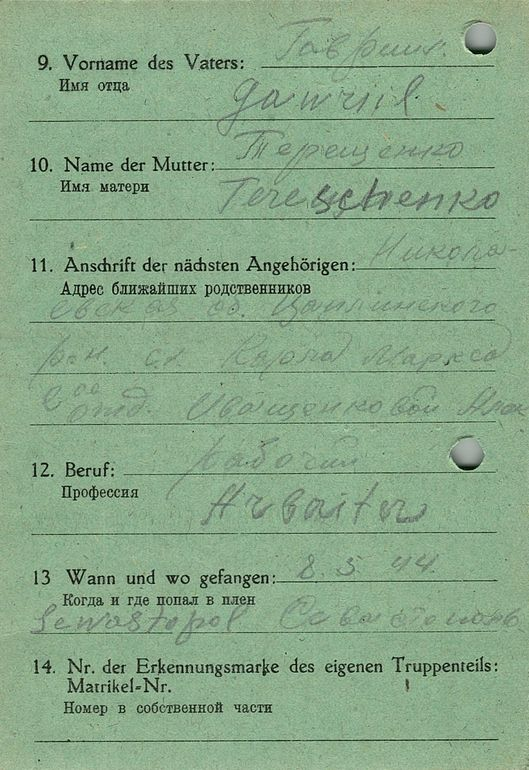 9. Vorname des Vaters: Гавриил
Имя отца
Gawriil
10. Name der Mutter: Терещенко
Имя матери
Tereschenko
11. Anschrift der nächsten Angehörigen: Никола-
Адрес ближайших родственников
евская об.
рон. с. Карла Маркса
отд. Иващенковой
12. Beruf: рабочий
Профессия
Arbaiter
13 Wann und wo gefangen: 8. 5. 44.
Когда и где попал в плен
Sewastopol
14. Nr. der Erkennungsmarke des eigenen Truppenteils:
Matrikel-Nr.
Номер в собственной части